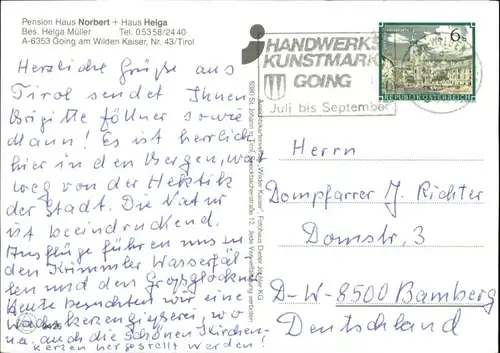 Pension Haus Norbert + Haus Helga
Bes. Helga Müller Tel. 05358/2440
A-6353 Going am Wilden Kaiser, Nr. 43/Tirol
Herzliche Grüße aus
Tirol sendet Ihnen
Brigitte Föllner sowie
Mann! Es ist herrlich
hier in den Bergen, weit
weg von der Hektik
der Stadt. Die Natur
ist beeindruckend.
Ausflüge führen uns zu
den Krimmler Wasserfäl
len und den Großglockner
Heute besuchten wir eine
Wachskerzengießerei, wo
u.a. auch die schönen Kirchen-
kerzen hergestellt werden!
HANDWERKS
KUNSTMARK
GOING
Juli bis September
6 S
REPUBLIK ÖSTERREICH
Ansichtskartenverlag "Wilder Kaiser", Fotohaus Dieter KG
6380 St. Johann in Tirol, 12. Jede Vervielfältigung verboten!
Herrn
Dompfarrer J. Richter
Domstr. 3
D-W-8500 Bamberg
Deutschland